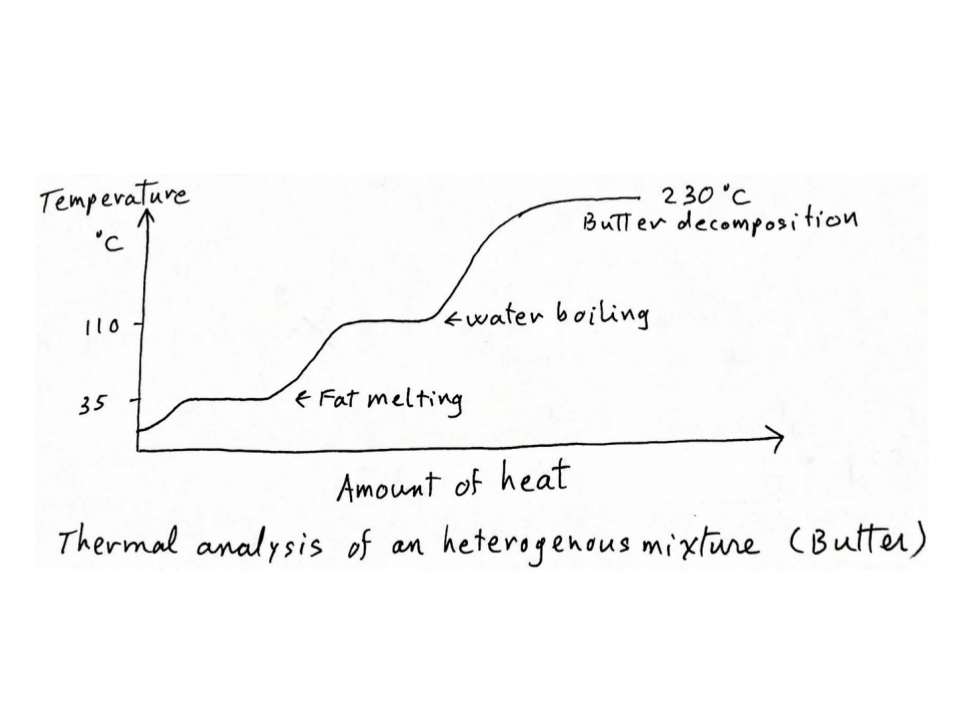 Temperature
°C
230 °C
Butter decomposition
110
← water boiling
35
← Fat melting
Amount of heat
Thermal analysis of an heterogenous mixture (Butter)